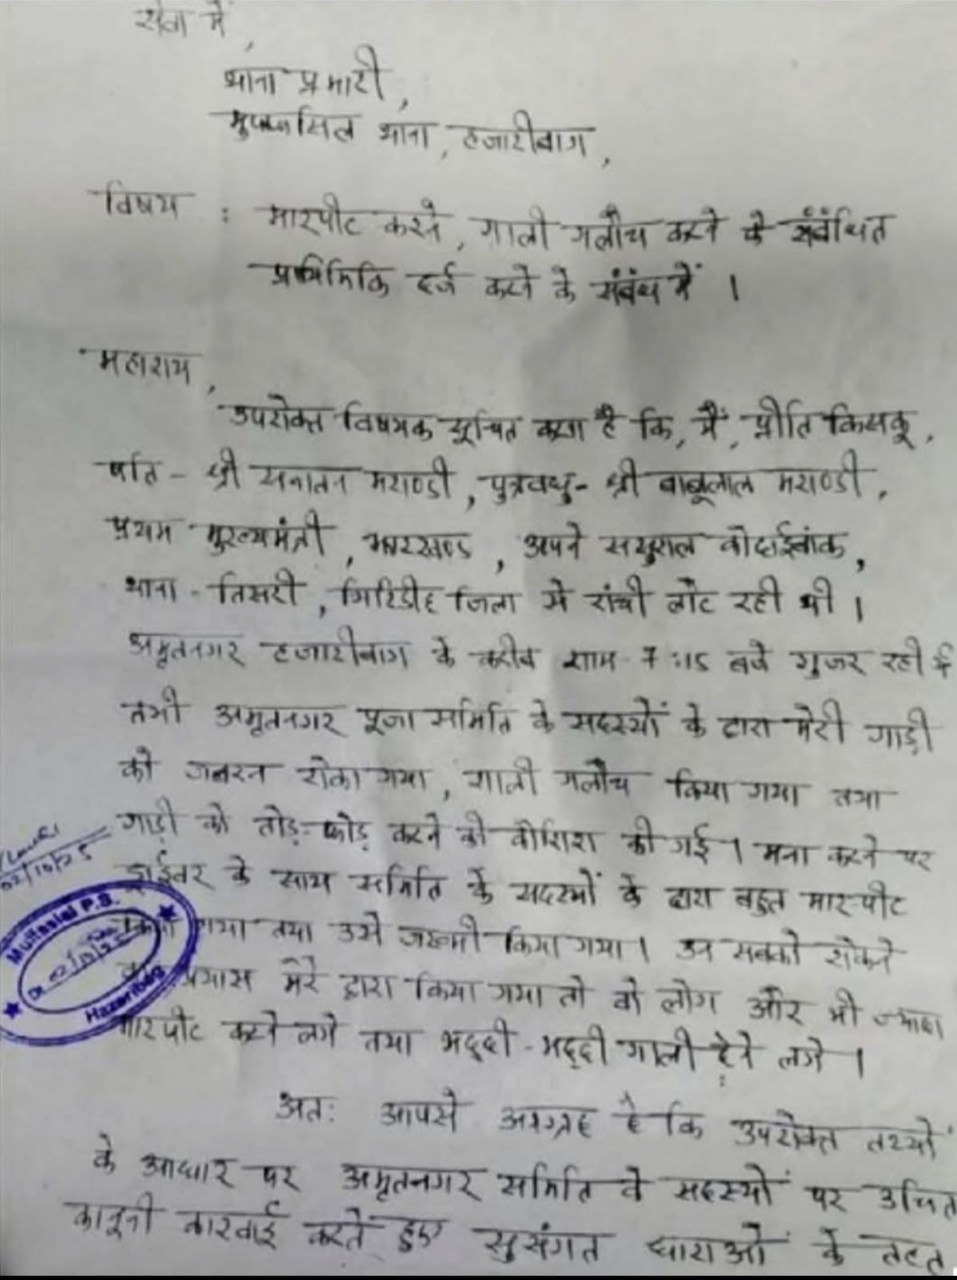 सेवा में,
थाना प्रभारी,
मुफ्फसिल थाना, हजारीबाग,
विषय : मारपीट करने, गाली गलौच करने के संबंधित
प्राथमिकि दर्ज करने के संबंध में ।
महाशय,
उपरोक्त विषयक सूचित करना है कि, मैं, प्रीति किसकू,
पति - श्री सनातन मराण्डी, पुत्रवधु - श्री बाबूलाल मराण्डी,
प्रथम मुख्यमंत्री, झारखण्ड, अपने ससुराल कोदाईबांक,
थाना - तिसरी, गिरिडीह जिला से रांची लौट रही थी ।
अमृतनगर हजारीबाग के करीब शाम 7:15 बजे गुजर रही थी
तभी अमृतनगर पूजा समिति के सदस्यों के द्वारा मेरी गाड़ी
को जबरन रोका गया, गाली गलौच किया गया तथा
गाड़ी को तोड़-फोड़ करने की कोशिश की गई । मना करने पर
02/10/25
ड्राईवर के साथ समिति के सदस्यों के द्वारा बहुत मारपीट
Muffasial P.S.
किया गया तथा उसे जख्मी किया गया । उन सबको रोकने
प्रयास मेरे द्वारा किया गया तो वो लोग और भी ज्यादा
Hazaribag
मारपीट करने लगे तथा भद्दी-भद्दी गाली देने लगे ।
अतः आपसे आग्रह है कि उपरोक्त तथ्यों
के आधार पर अमृतनगर समिति के सदस्यों पर उचित
कानूनी कारवाई करते हुए सुसंगत धाराओं के तहत